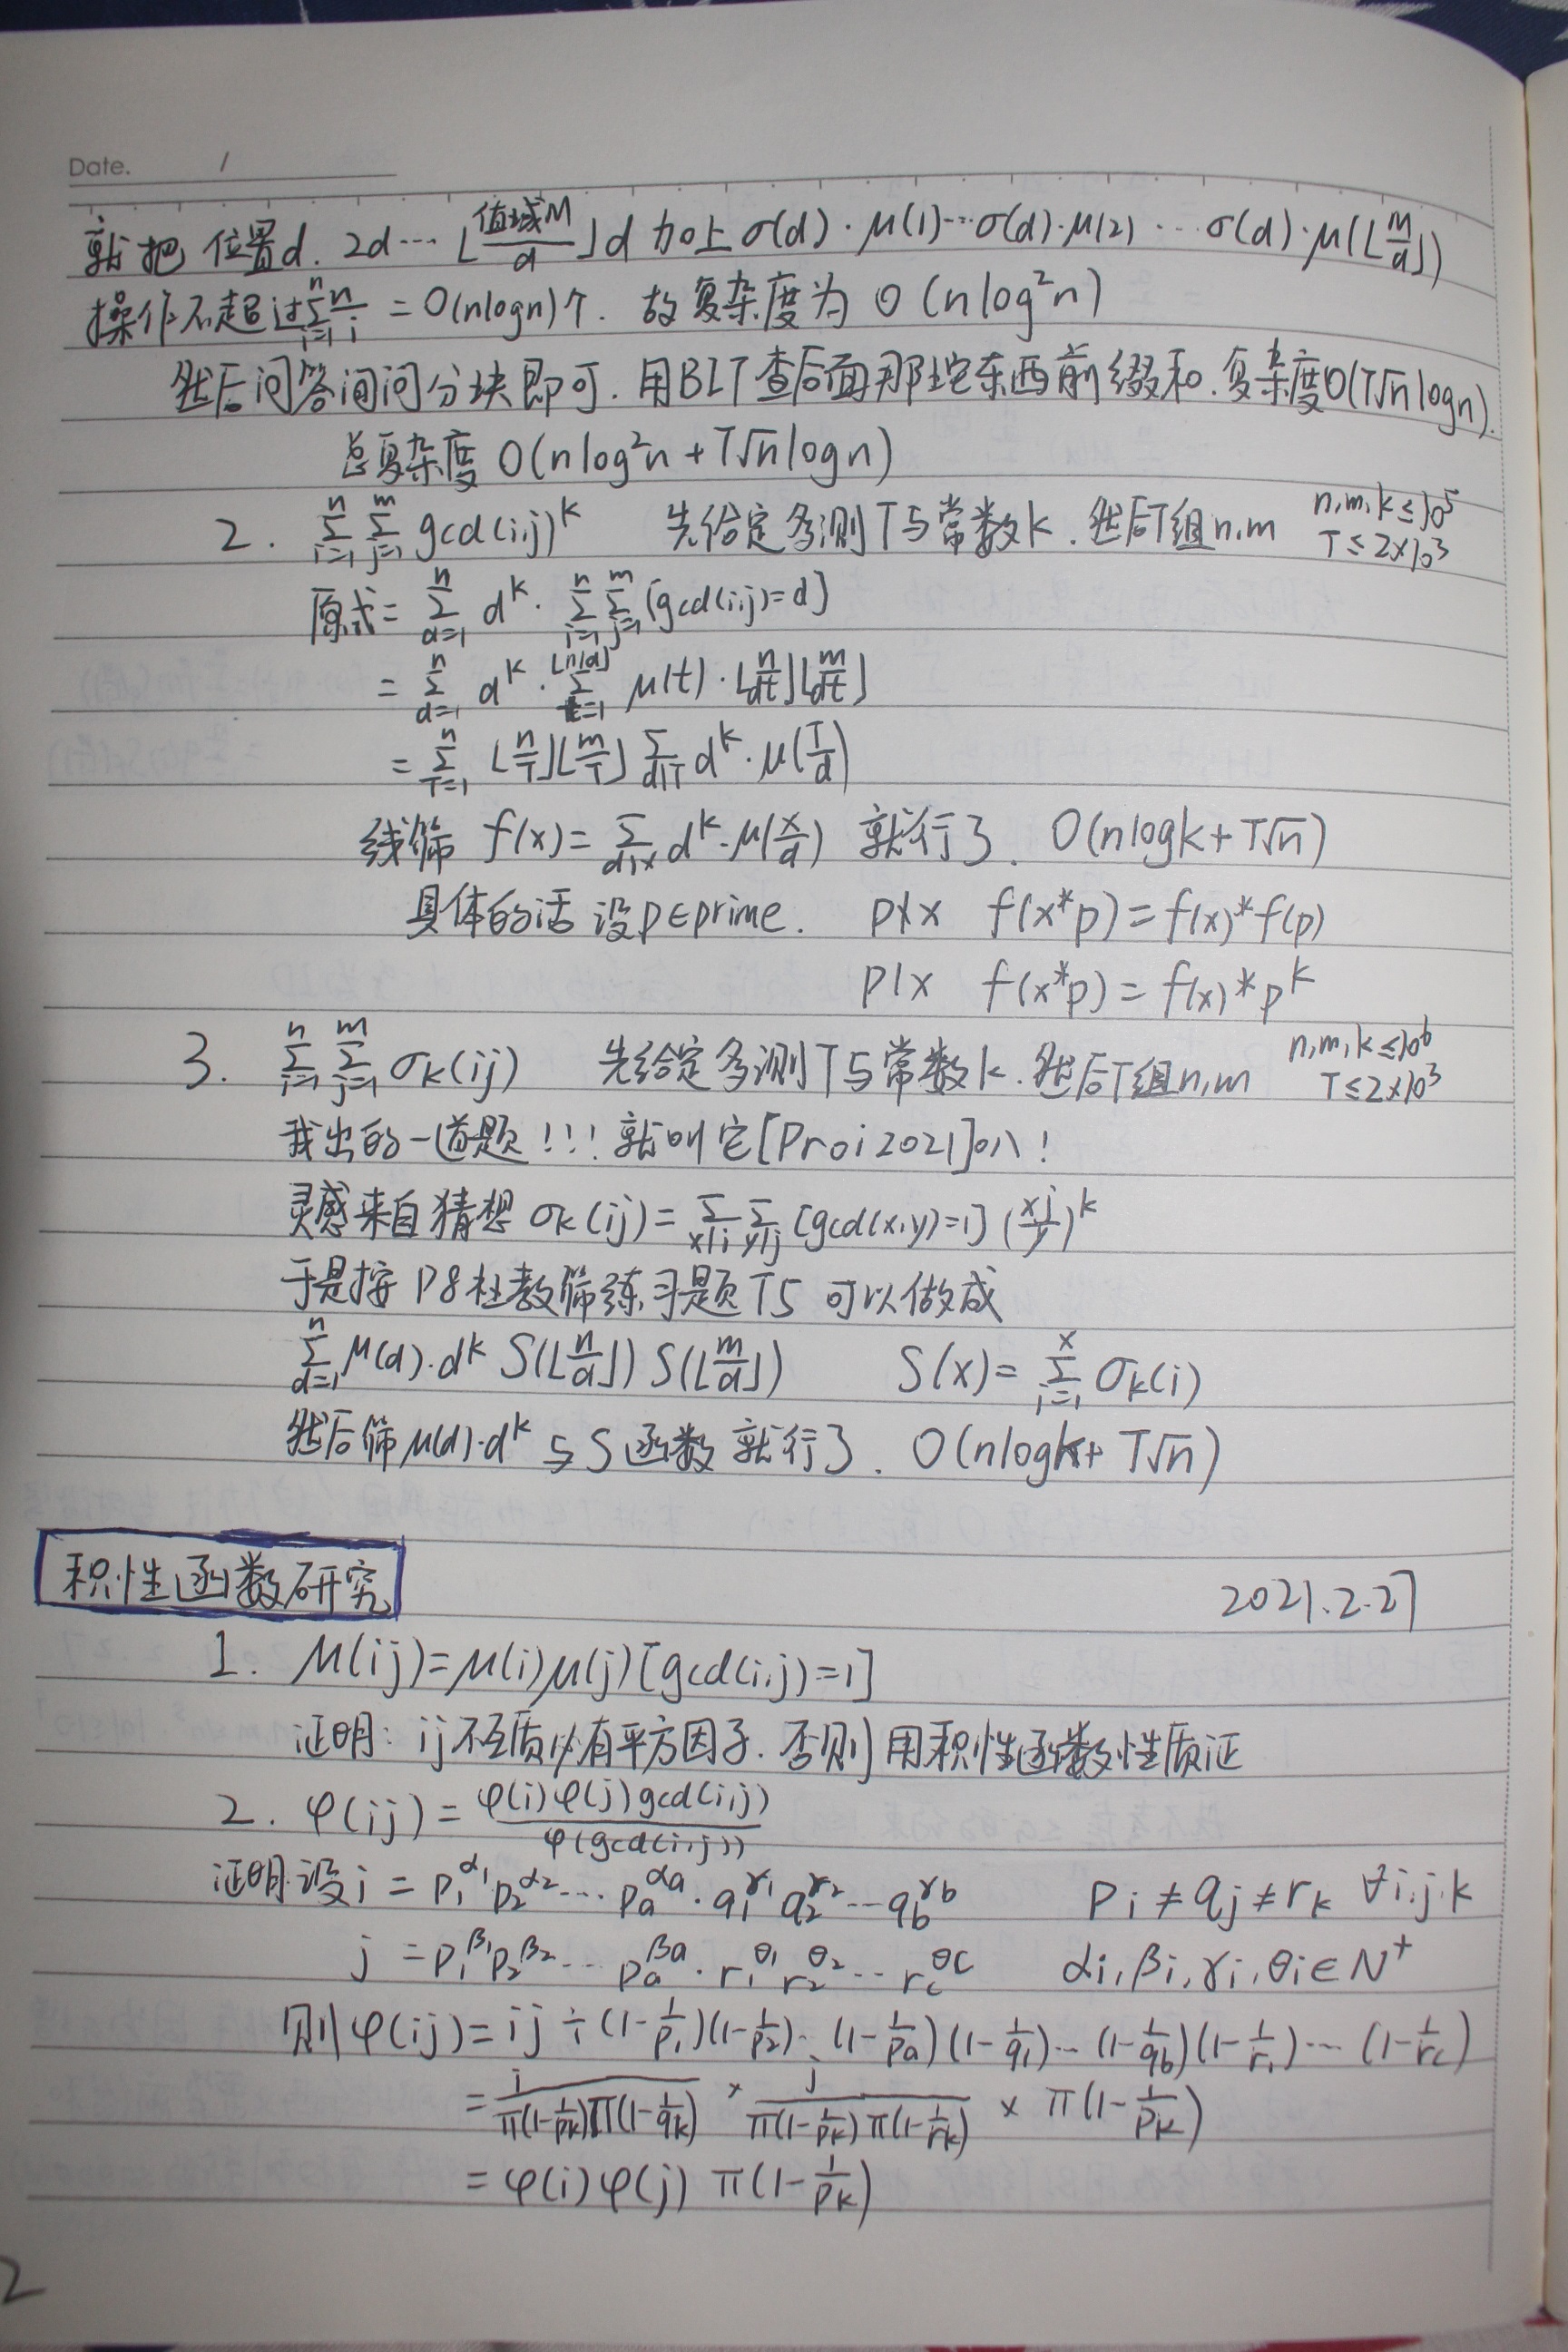 Date. /
就把位置d. 2d… ⌊值域N/d⌋d 加上 σ(d)·μ(1)…σ(d)·μ(2)…σ(d)·μ(⌊m/d⌋)
操作不超过 ∑_{i=1}^{n} n/i = O(nlogn)个. 故复杂度为 O(nlog²n)
然后询问分块即可. 用BIT查后面那坨东西前缀和. 复杂度O(T√n logn).
总复杂度 O(nlog²n + T√n logn)
2. ∑_{i=1}^{n} ∑_{j=1}^{m} gcd(i,j)^k 先给定多测T与常数k. 然后T组n,m n,m,k≤10^5 T≤2×10^3
原式= ∑_{d=1}^{n} d^k · ∑_{i=1}^{n} ∑_{j=1}^{m} [gcd(i,j)=d]
= ∑_{d=1}^{n} d^k · ∑_{t=1}^{⌊n/d⌋} μ(t)·⌊n/dt⌋⌊m/dt⌋
= ∑_{T=1}^{n} ⌊n/T⌋⌊m/T⌋ ∑_{d|T} d^k·μ(T/d)
线筛 f(x)= ∑_{d|x} d^k·μ(x/d) 就行了. O(nlogk+T√n)
具体的话 设p∈prime. p∤x f(x*p)=f(x)*f(p)
p|x f(x*p)=f(x)*p^k
3. ∑_{i=1}^{n} ∑_{j=1}^{m} σk(ij) 先给定多测T与常数k. 然后T组n,m n,m,k≤10^6 T≤2×10^3
我出的一道题!!! 就叫它[Proi2021]σ!!
灵感来自猜想 σk(ij)= ∑_{x|i} ∑_{y|j} [gcd(x,y)=1](xj/y)^k
于是按P8杜教筛练习题T5 可以做成
∑_{d=1}^{n} μ(d)·d^k S(⌊n/d⌋) S(⌊m/d⌋) S(x)= ∑_{i=1}^{x} σk(i)
然后筛 μ(d)·d^k 与S函数 就行了. O(nlogk+T√n)
积性函数研究 2021.2.27
1. μ(ij)=μ(i)μ(j)[gcd(i,j)=1]
证明: ij不能有平方因子. 否则用积性函数性质证
2. φ(ij) = φ(i)φ(j)gcd(i,j) / φ(gcd(i,j))
证明:设i = p₁^α₁ p₂^α₂ … pₐ^αₐ · q₁^γ₁ q₂^γ₂ … q_b^γ_b Pi≠qj≠rk ∀i,j,k
j = p₁^β₁ p₂^β₂ … pₐ^βₐ · r₁^θ₁ r₂^θ₂ … r_c^θc αi,βi,γi,θi∈N⁺
则 φ(ij)= ij ÷ (1-1/p₁)(1-1/p₂)…(1-1/pₐ)(1-1/q₁)…(1-1/q_b)(1-1/r₁)…(1-1/r_c)
= i / π(1-1/pk)π(1-1/qk) × j / π(1-1/pk)π(1-1/rk) × π(1-1/pk)
= φ(i)φ(j) π(1-1/pk)